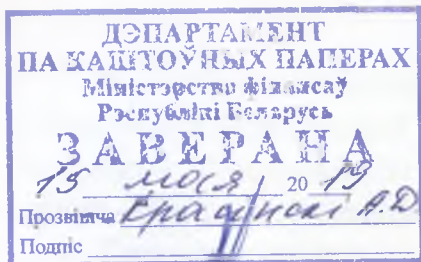 ДЭПАРТАМЕНТ
ПА КАШТОЎНЫХ ПАПЕРАХ
Міністэрства фінансаў
Рэспублікі Беларусь
ЗАВЕРАНА
15 мая 20 19
Прозвішча А.Д
Подпіс